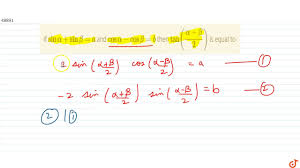 48881
If sin α + sin β = a and cos α − cos β = b then tan((α − β)/2) is equal to
2 sin((α+β)/2) cos((α−β)/2) = a — ①
-2 sin((α+β)/2) sin((α−β)/2) = b — ②
② | ①